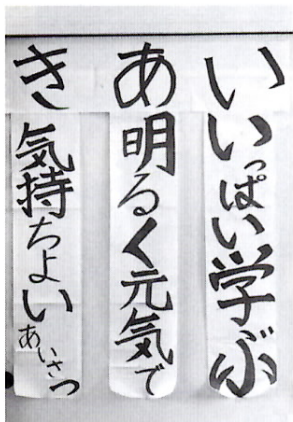 い いっぱい学ぶ
あ 明るく元気で
き 気持ちよいあいさつ